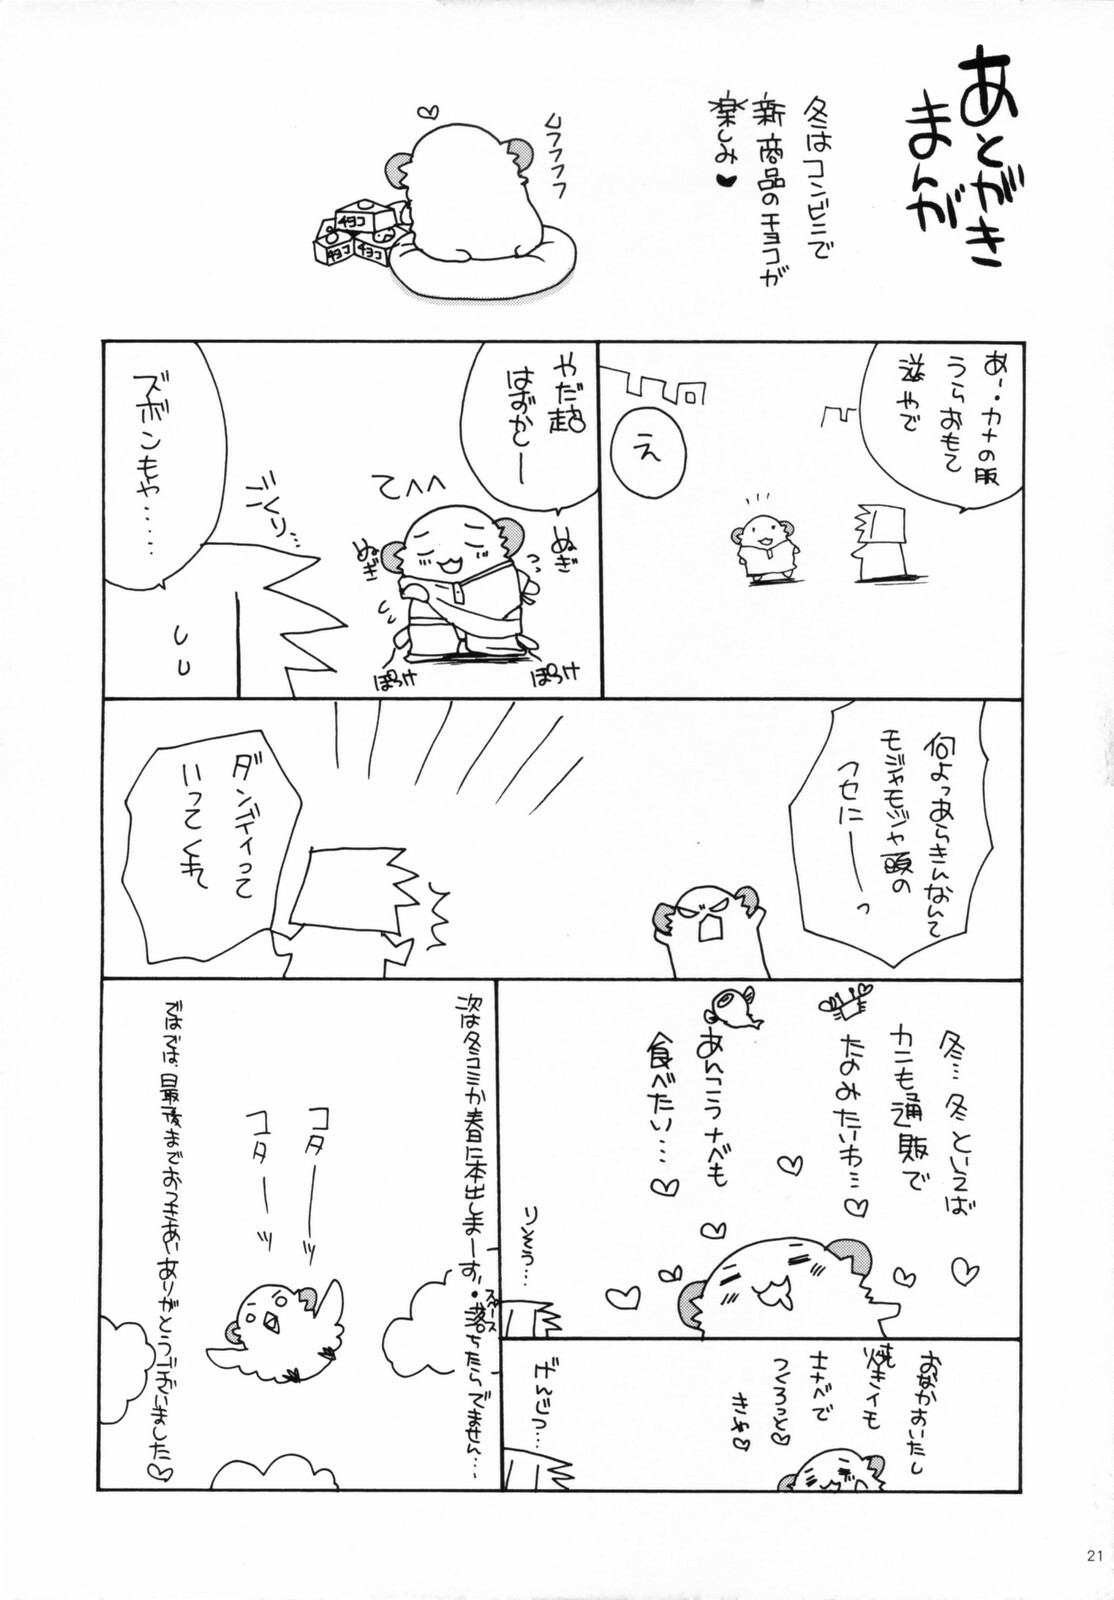 あとがき
まんが
冬はコンビニで
新商品のチョコが
楽しみ♥
ムフフフフ
チョコ
チョコ
チョコ
あー・カナの服
うらおもて
逆やで
え
やだ超
はずかしー
てへへ
ぬぎ
ぬぎ
ぽろけ
ぽろけ
ごくり…
ズボンもや……
何よっあらきんなんて
モジャモジャ頭の
クセにーーっ
ダンディって
いってくれ
冬…冬といえば
カニも通販で
たのみたいわ…♡
あんこうナベも
食べたい…♡
りそう…
おなかおいたし
焼きイモ
ナベで
つくろっと♡
きゃ♡
げんじつ…
次は冬コミか春に本出しまーす・落ちたらでません…
スペース
コターーッ
コターーッ
ではでは、最後までおつきあいありがとうございました♡
21